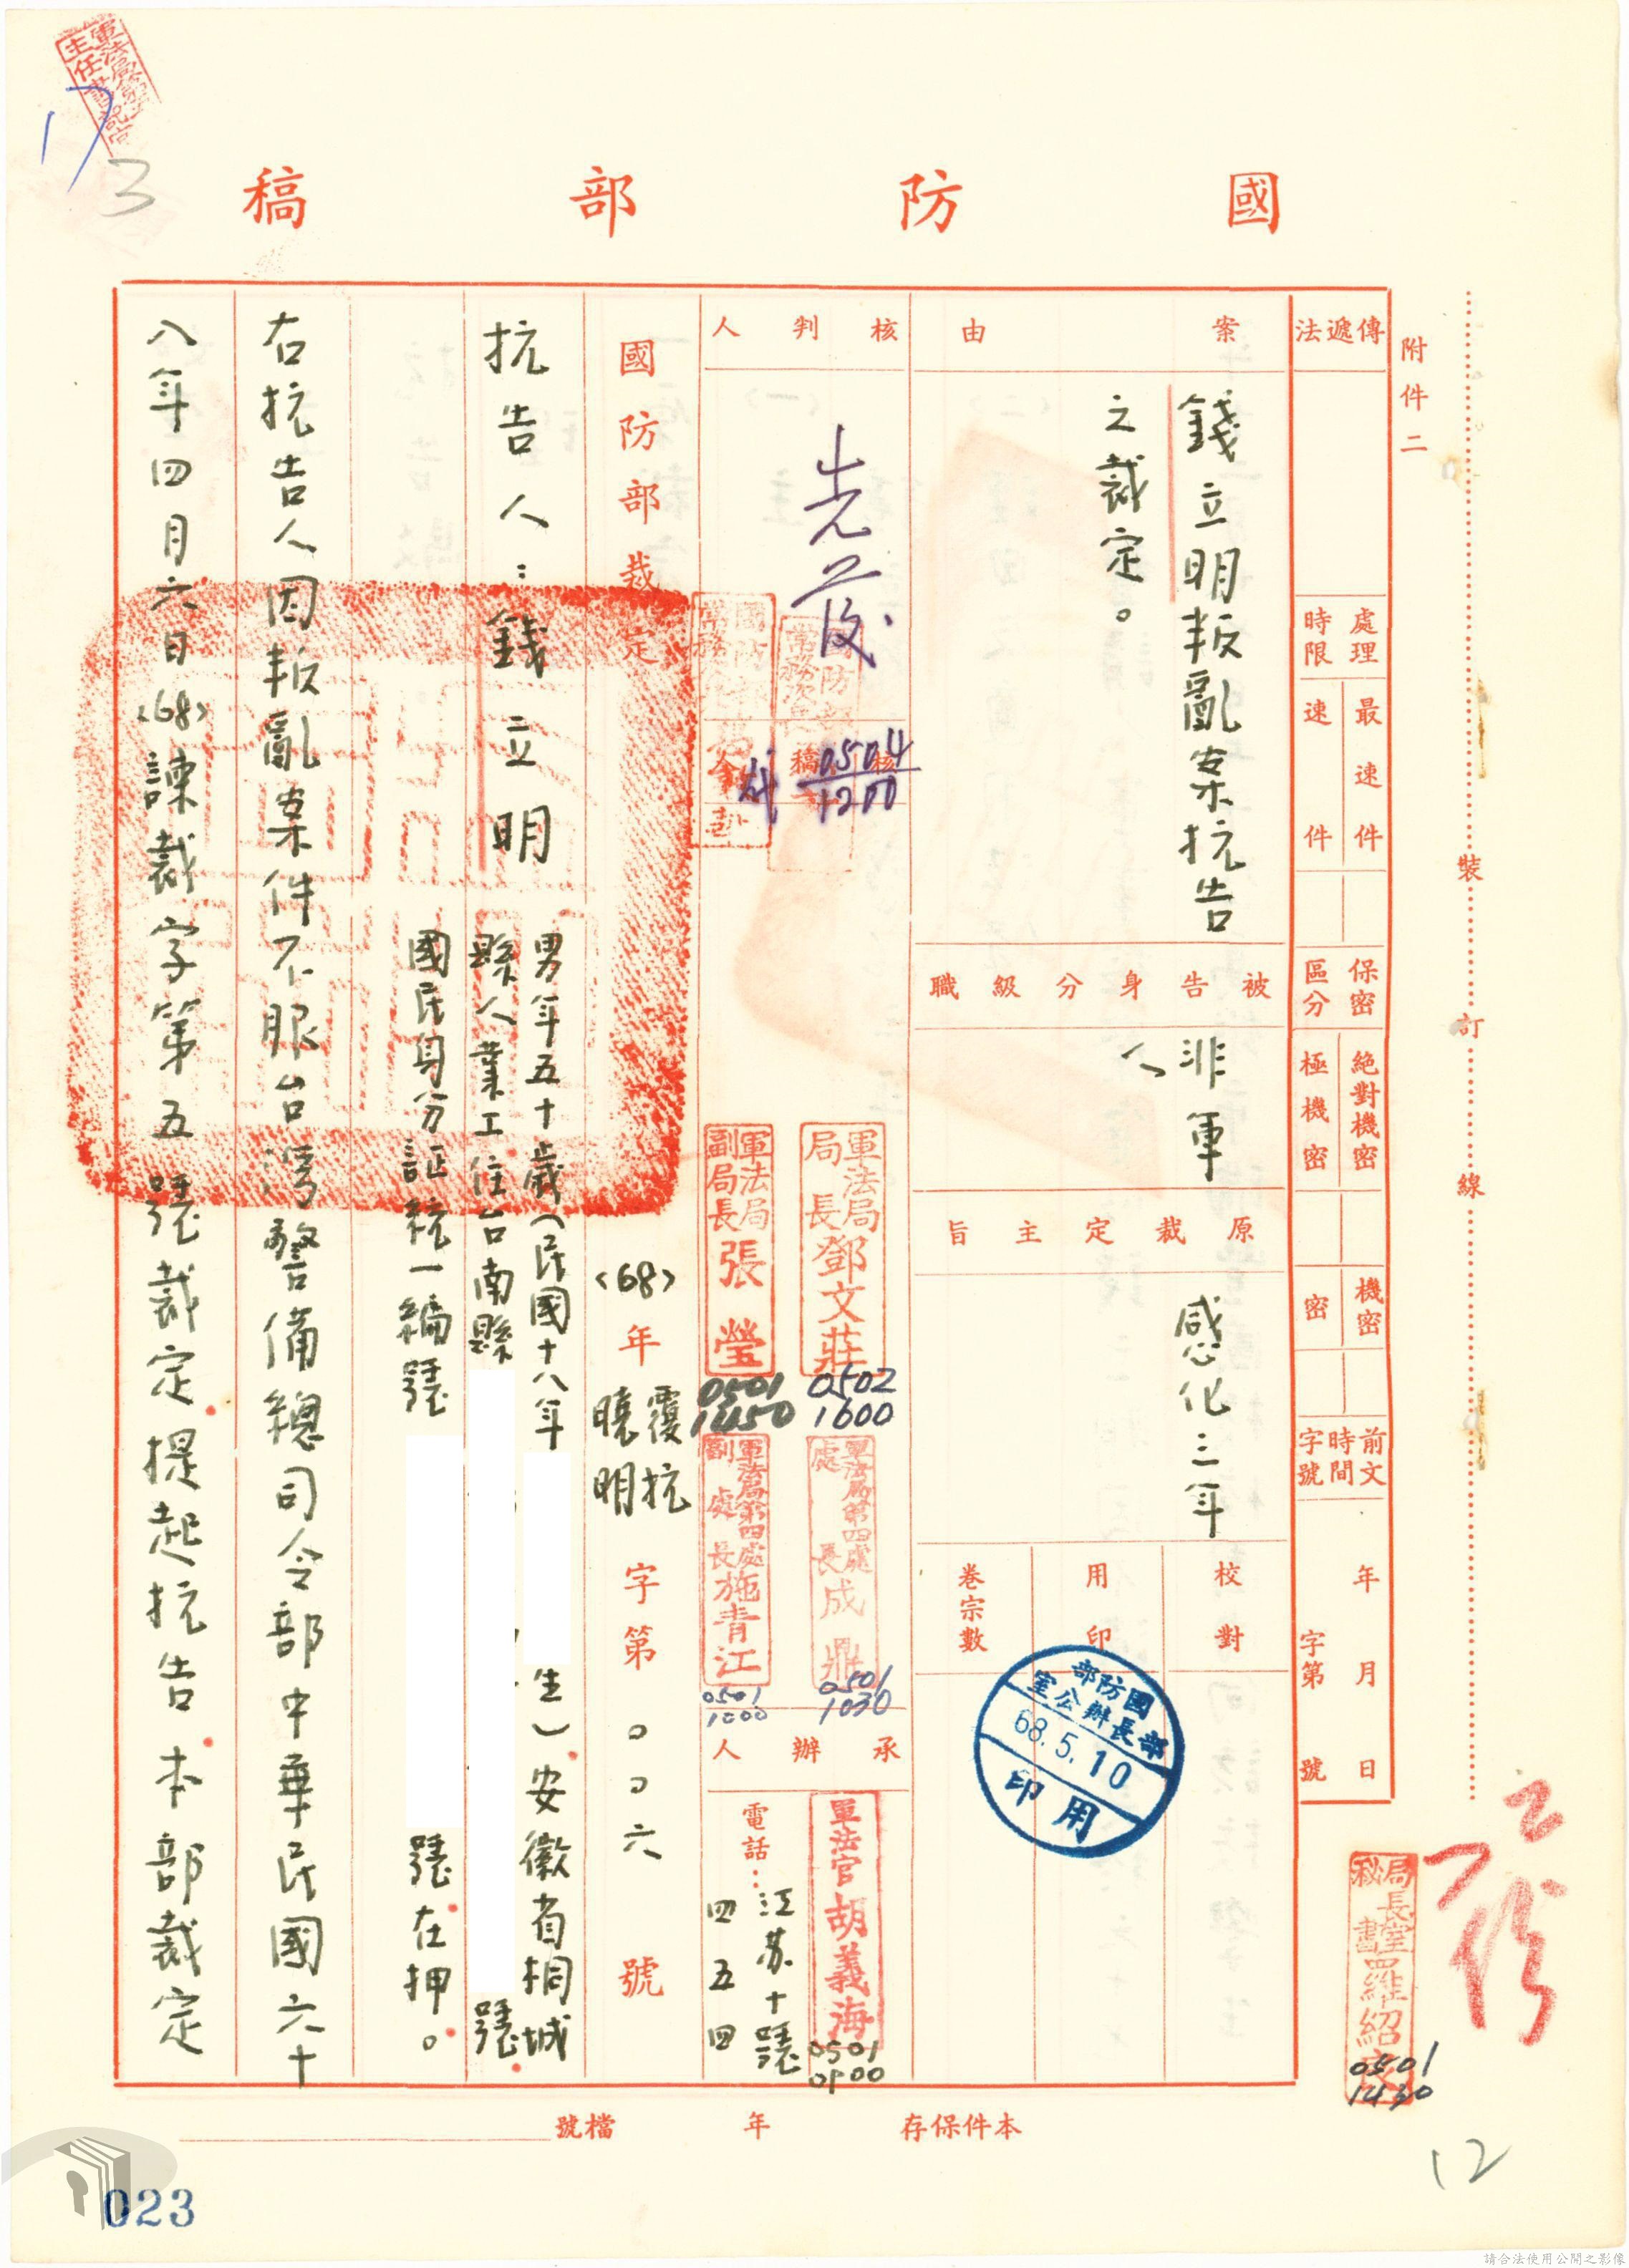 國防部稿
附件二
裝訂線
傳遞法
處理時限
最速件
速件
保密區分
絕對機密
極機密
機密
密
前文時間字號
年月日
字第號
案由
錢立明叛亂案抗告
之裁定。
被告身分級職
非軍
人
原裁定主旨
感化三年
校對
用印
卷宗數
國防部
部長辦公室
68.5.10
用印
核判人
核稿
0504
1200
軍法局
局長鄧文莊
0502
1600
軍法局
副局長張瑩
0501
1450
軍法局第四處
處長成鼎
0501
1030
軍法局第四處
副處長施青江
0501
1000
承辦人
軍法官胡義海
0501
0900
電話：
江蘇十號
四五四
局長室
秘書羅紹
0501
1430
國防部裁定
(68)年
覆抗
曉明
字第00六號
抗告人：錢立明
男年五十歲(民國十八年
生)安徽省桐城
縣人業工住台南縣
號
國民身分証統一編號
號在押。
右抗告人因叛亂案件不服台灣警備總司令部中華民國六十
八年四月六日(68)諫裁字第五號裁定提起抗告本部裁定
本件保存
年
檔號
17
3
12
023
請合法使用公開之影像